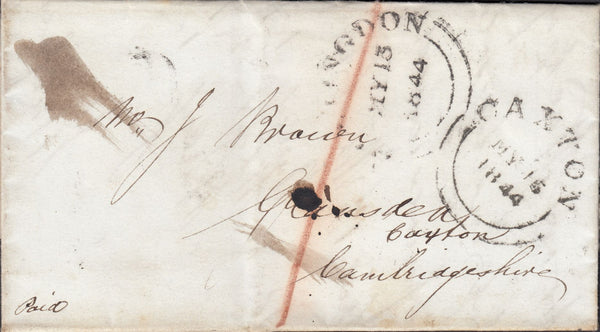 INGDON
MY 13
1844
CAXTON
MY 15
1844
Mr J Brown
Gransden
Caxton
Cambridgeshire
Paid